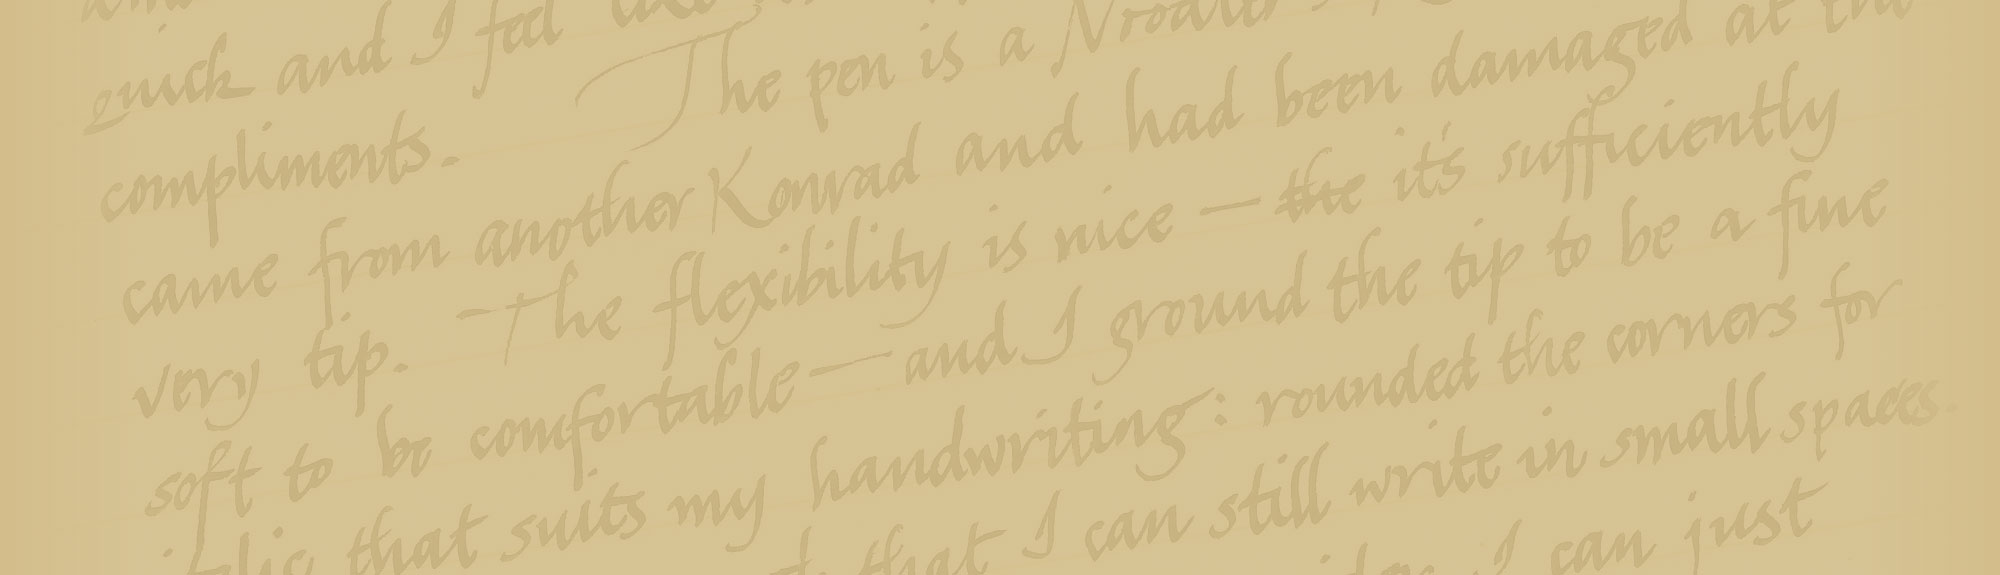 quick and I feel like
compliments. The pen is a Noodler's
came from another Konrad and had been damaged at the
very tip. The flexibility is nice — the it's sufficiently
soft to be comfortable — and I ground the tip to be a fine
italic that suits my handwriting: rounded the corners for
that I can still write in small spaces.
I can just